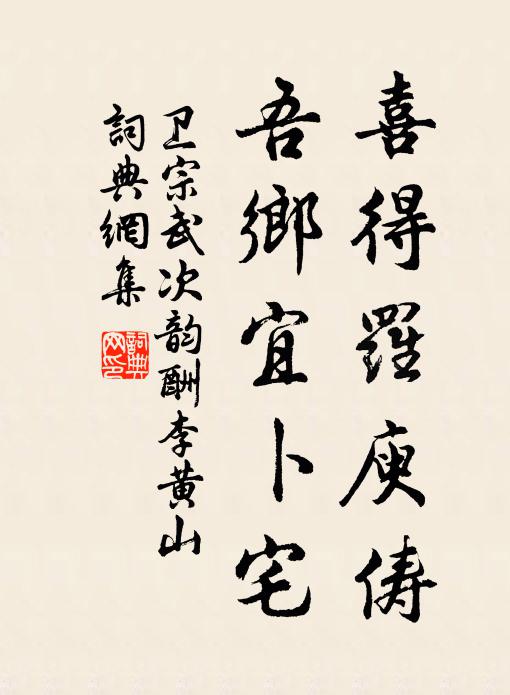 喜得羅庾儔
吾鄉宜卜宅
卫宗武次韵酬李黄山
詞典網集
詞典
网印